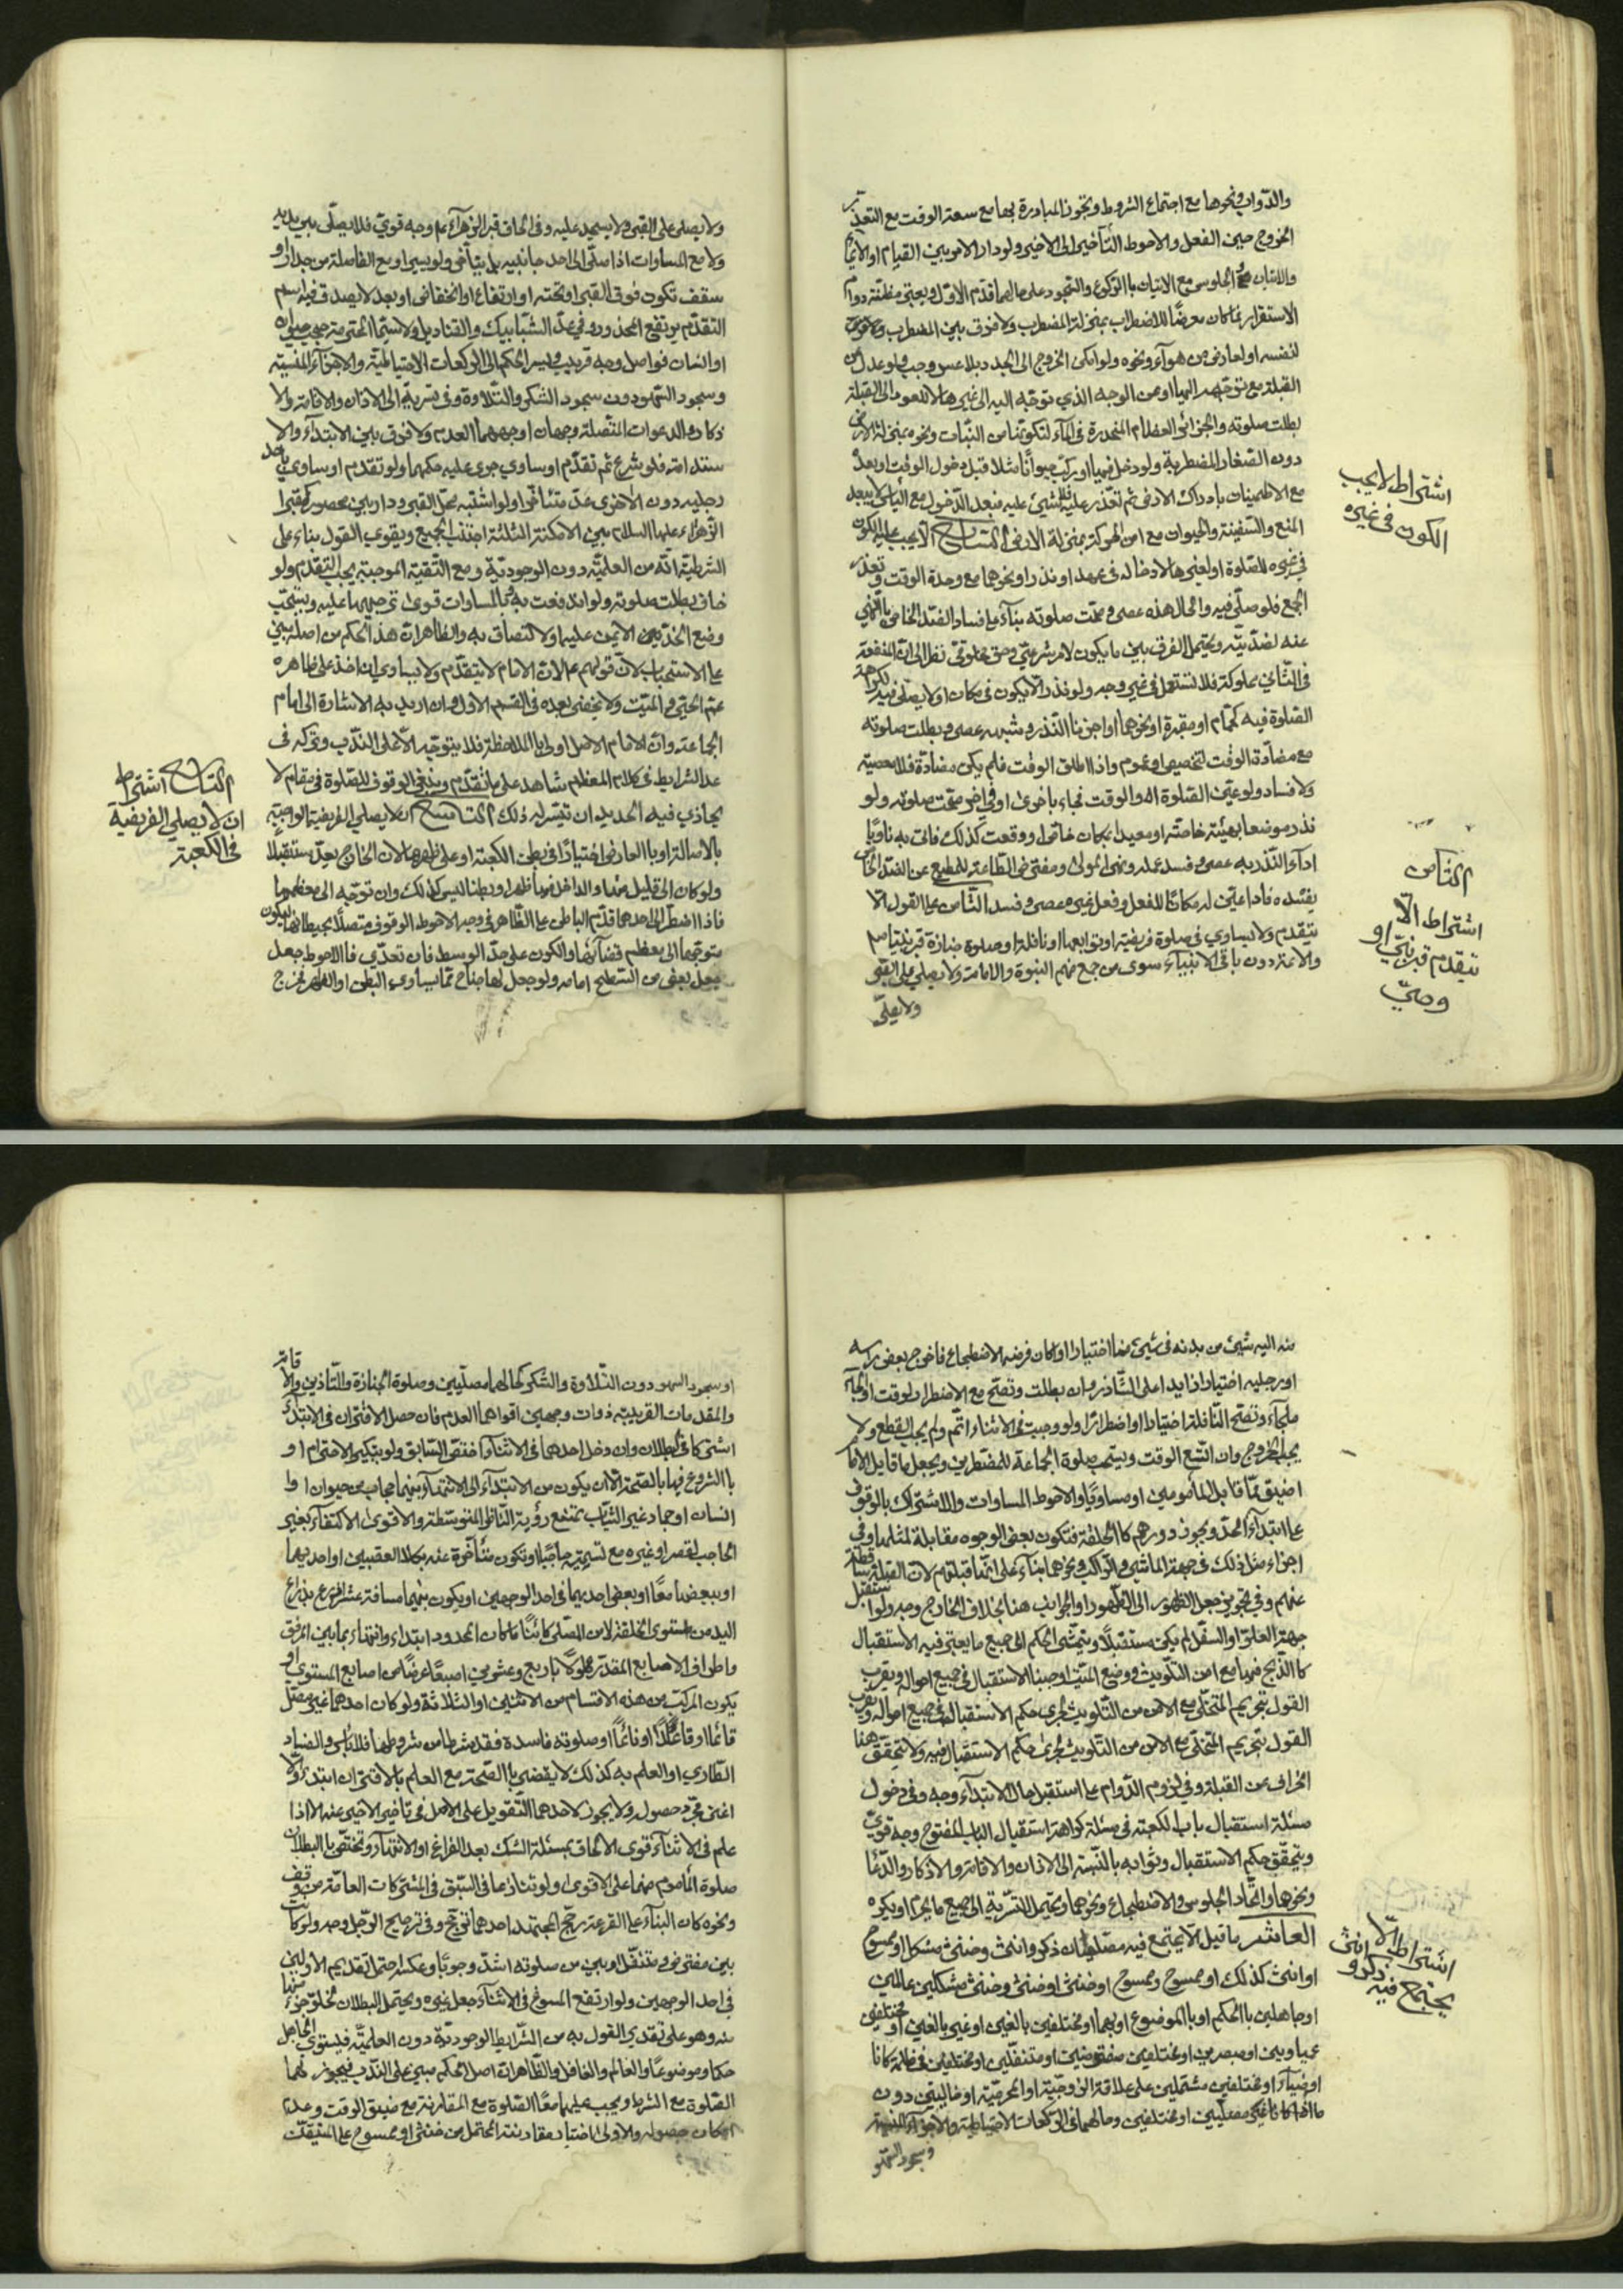 والدواب ونحوها مع اجتماع الشروط وتجوز المبادرة بها مع سعة الوقت مع التعذر
الخروج حين الفعل والاحوط التأخير الى الاخير ولو دار الامر بين القيام او الايماء
الاستقرار فما كان معرضا للاضطراب بمنزلة المضطرب ولا فرق بين المضطرب
لنفسه او لعارض من هواء ونحوه ولو امكن الخروج الى الجدد بلا عسر وجب ولو عدل عن
القبلة مع توجهه اليها او عن الوجه الذي توجه اليه الى غيرها لا للعود الى القبلة
بطلت صلوته والجزائر العظام المنحدرة في الماء لتكونها من النبات ونحوه بمنزلة الارض
دون الصغار المضطربة ولو دخل فيها او ركب حيوانا مثلا قبل دخول الوقت او بعده
المنع والسفينة والحيوان مع امن الحركة بمنزلة الارض السابع الا يجب عليه الكون
في غيره للصلوة او لغيرها لادخاله في عهد او نذر او نحوهما مع وحدة الوقت وتعذر
الجمع فلو صلى فيه والحال هذه عصى وصحت صلوته بناء على فساد الضد الخاص بالنهي
عنه لضديته ويحتمل الفرق بين ما يكون لامر شرعي وحق مخلوقي نظرا الى ان المنفعة
في الثاني مملوكة فلا تستعمل في غير وجه ولو نذر الا يكون في مكان او لا يصلي فيه لكراهة
الصلوة فيه كحمام او مقبرة او نحوهما واجزنا النذر وشبهه عصى وبطلت صلوته
مع مضادة الوقت لتخصيص او عموم واذا اطلق الوقت فلم يكن مضادة فلا معصية
ولا فساد ولو عين الصلوة والوقت فجاء باخرى او في اخر صحت صلوته ولو
نذر موضعا بهيئة خاصة او معيدا بمكان خاص او وقعت كذلك فاتى به ناويا
اداء النذر به عصى وفسد عمله ونهي المولى ومفترض الطاعة للمطيع عن الضد الخاص
يفسده فاذا عين له مكانا للفعل وفعل غيره عصى وفسد الثامن على القول الا
يتقدم ولا يساوي في صلوة فريضة او توابعها او نافلة او صلوة جنازة قبر نبينا ص
والائمة دون باقي الانبياء سوى من جمع منهم النبوة والامامة ولا يصلي على القبر
ولا يصلى
اشتراط لا يجب
الكون في غيره
الثامن
اشتراط الا
يتقدم قبر نبي او
وصي
ولا يصلى على القبر ولا يسجد عليه وفي الحاق قبر الزهراء ع م وجه قوي فلا يصلى بين يديه
ولا مع المساوات اذا صلى الى احد جانبيه بل يتأخر ولو يسيرا ومع الفاصلة من جدار او
سقف تكون فوق القبر او تحته او ارتفاع او انخفاض او بعد لا يصدق فيه اسم
التقدم يرتفع المحذور وفي عد الشبابيك والقناديل ولا سيما المحترمة حي حيوان
او انسان فواصل وجه قريب ويسري الحكم الى الركعات الاحتياطية والاجزاء المنسية
وسجود السهو دون سجود الشكر والتلاوة وفي تسريته الى الاذان والاقامة والا
ذكار والدعوات المتصلة وجهان اوجههما العدم ولا فرق بين الابتداء والا
ستدامة فلو شرع ثم تقدم او ساوى جرى عليه حكمهما ولو تقدم او ساوى باحد
رجليه دون الاخرى عد متأخرا ولو اشتبه محل القبر ودار بين محصور كقبر
الزهراء عليها السلام بين الامكنة الثلثة اجتنب الجميع ويقوى القول بناء على
الشرطية انه من العلمية دون الوجودية ومع التقية الموجبة يجب التقدم ولو
خاف بطلت صلوته ولو اندفعت به وبالمساوات قوى ترجيحها عليه ويستحب
وضع الخد الايمن عليها والالتصاق به والظاهر ان هذا الحكم من اصله مبني
على الاستحباب لان قولهم عم لان الامام لا يتقدم ولا يساوى ان اخذ على ظاهره
عم الحي والميت ولا يخفى بعده في القسم الاول وان اريد به الاشارة الى امام
الجماعة وان الامام الاصل اولى بالملاحظة فلا يتوجه الا على الندب وتركه في
عد الشرايط في كلام المعظم شاهد على ما تقدم وينبغي الوقوف للصلوة في مقام لا
يحاذي فيه الحديد ان تيسر له ذلك التاسع ان لا يصلي الفريضة الواجبة
بالاصالة او بالعارض اختيارا في بطن الكعبة او على ظهرها لان الخارج يعد مستقبلا
ولو كان الى قليل منها والداخل فيها ظهرا وبطنا ليس كذلك وان توجه الى معظمها
فاذا اضطر الى احدهما قدم الباطن على الظاهر في وجه والاحوط الوقوف متصلا بحيطانها ليكون
متوجها الى معظم فضائها والكون على حد الوسط فان تعدى فالاحوط جعل
بعض من السطح امامه ولو جعل لها جناح مما يساوي البطن او الظهر فخرج
التاسع اشتراط
ان لا يصلي الفريضة
في الكعبة
منه اليه شيئ من بدنه في شيئ منها اختيارا او كان فرضه الاضطجاع فاخرج بعض راسه
او رجليه اختيارا زايدا على الشاذروان بطلت وتصح مع الاضطرار لوقت او الجاء
ملجاء وتصح النافلة اختيارا واضطرارا ولو وجبت في الاثناء اتم ولم يجب القطع ولا
يجب الخروج وان اتسع الوقت ويستحب صلوة الجماعة للمضطرين ويجعل ما قابل الامام
اضيق مما قابل المأمومين او مساويا والاحوط المساوات والاشتراك بالوقوف
على ابتداء الحد ويجوز دورهم كالحلقة فتكون بعض الوجوه مقابلة لمثلها وفي
اجزاء مثل ذلك في جهة الماشي والراكب ونحوهما بناء على انها قبلتهم لان القبلة ساقطة
عنهم وفي تجويز جعل الظهور الى الظهور او الجوانب هنا بخلاف الخارج وجه ولو استقبل
جهة العلو او السفل لم يكن مستقبلا ويتمشى الحكم الى جميع ما يعتبر فيه الاستقبال
كالذبح فيها مع امن التلويث ووضع الميت اوجبنا الاستقبال في جميع احواله ويقرب
القول بتحريم التخلي مع الامن من التلويث لجرى حكم الاستقبال في جميع احواله ويقرب
القول بتحريم التخلي مع الامن من التلويث لجرى حكم الاستقبال فيه ولا تحقق هنا
انحراف عن القبلة وفي لزوم الدوام على ما استقبل حال الابتداء وجه وفي دخول
مسئلة استقبال باب الكعبة في مسئلة كراهة استقبال الباب المفتوح وجه قوي
ويتحقق حكم الاستقبال وثوابه بالنسبة الى الاذان والاقامة والاذكار والدعاء
ونحوها واتحاد الجلوس والاضطجاع ونحوهما ويحتمل التسرية الى جميع ما يحرم او يكره
العاشر ما قيل الا يجتمع فيه مصليان ذكر وانثى وخنثى مشكل او ممسوح
او انثى كذلك او ممسوح وممسوح او خنثى او خنثى وخنثى مشكلين عالمين
او جاهلين بالحكم او بالموضوع او بهما او مختلفين بالغين او غير بالغين او مختلفين
عمياوين او مبصرين او مختلفين مفترضين او متنفلين او مختلفين في ظلمة كانا
او ضياء او مختلفين مشتملين على علاقة الزوجية او المحرمية او خاليين دون
ما اذا كانا غير مصليين او مختلفين وحالهما في الركعات الاحتياطية والاجزاء المنسية
وسجود السهو
اشتراط الا
يجتمع فيه ذكر وانثى
او سجود السهو دون التلاوة والشكر كحالهما مصليين وصلوة الجنازة والتأذين والاقامة
والمقدمات القريبة ذوات وجهين اقواهما العدم فان حصل الاقتران في الابتداء
اشتركا في البطلان وان دخل احدهما في الاثناء اختص السابق ولو بتكبير الاحترام او
بالشروع فيها بالصحة الا ان يكون من الابتداء الى الانتهاء بينهما حجاب من حيوان او
انسان او جماد غير الثياب تمنع رؤية الناظر المتوسطة والاقوى الاكتفاء بغير
الحاجب لقصر او غيره مع تسميته حاجبا او تكون متأخرة عنه بكلا العقبين او احديهما
او ببعضها معا او بعض احديهما في احد الوجهين او يكون بينهما مسافة عشر اذرع بذراع
اليد من مستوى الخلقة لا من المصلى كائنا ما كان المحدود ابتداء وانتهاء بما بين المرفق
واطراف الاصابع المقدر طولا باربع وعشرين اصبعا عرضا من اصابع المستوى او
يكون المركب من هذه الاقسام من الاثنين او الثلاثة ولو كان احدهما غير مصل
قائما او قاعدا او نائما او صلوته فاسدة فقد شرطا من شروطها فلا بأس والفساد
الطاري او العلم به كذلك لا يقضي بالصحة مع العلم بالاقتران ابتداء والا
اغنى مجرد حصوله ولا يجوز لاحدهما التعويل على الاصل في تأخير الاخير عنه الا اذا
علم في الاثناء وقوى الالحاق بمسئلة الشك بعد الفراغ او الانتهاء وتختص بالبطلان
صلوة المأموم منهما على الاقوى ولو تنازعا في السبق في المشتركات العامة من وقف
ونحوه كان البناء على القرعة رجح المجتهد احدهما ترجح وفي ترجيح الرجل وجه ولو كانت
بين مفترض ومتنفل او بين من صلوته اشد وجوبا وعكسه احتمل تقديم الاولين
في احد الوجهين ولو ارتفع المسوغ في الاثناء جعل غيره ويحتمل البطلان لخلو جزء منها
منه وهو على تقدير القول به من الشرايط الوجودية دون العلمية فيستوى الجاهل
حكما وموضوعا والعالم والغافل والظاهر ان اصل الحكم مبني على الندب فيجوز لهما
الصلوة مع الشرط ويجب عليهما معا الصلوة مع المقارنة مع ضيق الوقت وعدم
امكان حصوله والاولى اختيار مقارنة المحتمل من خنثى او ممسوح على المتيقن